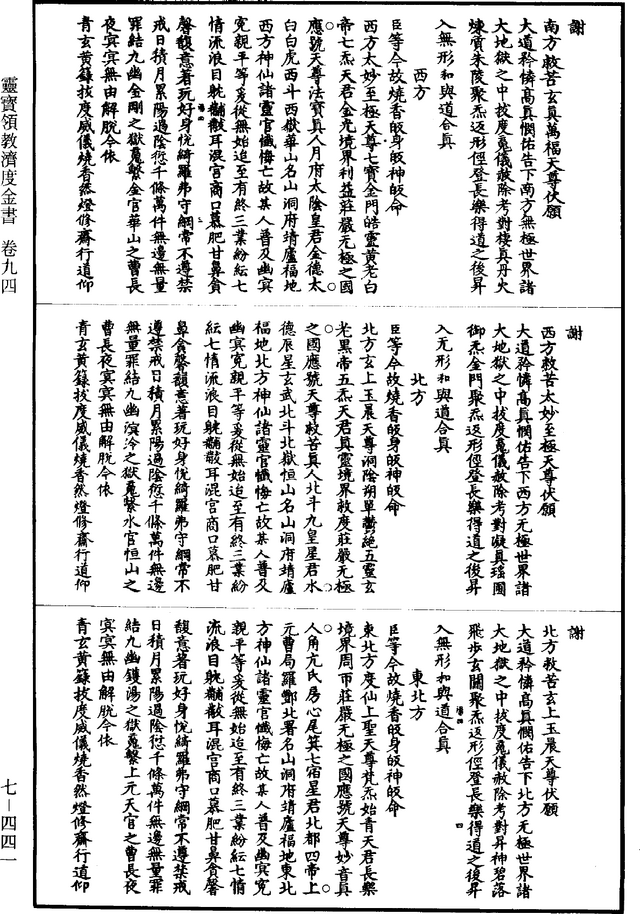 謝
南方救苦玄真萬福天尊伏願
大道矜憐高真憫佑告下南方無極世界諸
大地獄之中拔度䰟儀赦除考對棲真丹火
煉質朱陵聚炁返形徑登長樂得道之後昇
入無形和與道合真
西方
臣等今故燒香皈身皈神皈命
西方太妙至極天尊七寶金門皓靈黃老白
帝七炁天君金光境界利益莊嚴无極之國
應號天尊法寶真人月府太陰皇君金德太
白白虎西斗西嶽華山名山洞府靖廬福地
西方神仙諸靈官懺悔亡故某人普及幽冥
寃親平等爰從無始迨至有終三業紛紜七
情流浪目躭黼黻耳混宫商口慕肥甘鼻貪
馨馥意著玩好身恱綺羅弗守綱常不遵禁
戒日積月累陽過陰愆千條萬件無邊無量
罪結九幽金剛之獄䰟繫金官華山之曹長
夜冥冥無由解脫今依
青玄黃籙拔度威儀燒香然燈修齋行道仰
謝
西方救苦太妙至極天尊伏願
大道矜憐高真憫佑告下西方无極世界諸
大地獄之中拔度䰟儀赦除考對凝真瑤圃
御炁金門聚炁返形徑登長樂得道之後昇
入无形和與道合真
北方
臣等今故燒香皈身皈神皈命
北方玄上玉晨天尊洞陰朔單鬱絕五靈玄
老黑帝五炁天君真靈境界救度莊嚴无極
之國應號天尊救苦真人北斗九皇星君水
德辰星玄武北斗北嶽恒山名山洞府靖廬
福地北方神仙諸靈官懺悔亡故某人普及
幽冥寃親平等爰從無始迨至有終三業紛
紜七情流浪目躭黼黻耳混宫商口慕肥甘
鼻貪馨馥意著玩好身恱綺羅弗守綱常不
遵禁戒日積月累陽過陰愆千條萬件無邊
無量罪結九幽溟泠之獄䰟繫水官恒山之
曹長夜冥冥無由解脫今依
青玄黃籙拔度威儀燒香然燈修齋行道仰
謝
北方救苦玄上玉晨天尊伏願
大道矜憐高真憫佑告下北方无極世界諸
大地獄之中拔度䰟儀赦除考對昇神碧落
飛步玄關聚炁返形徑登長樂得道之後昇
入無形和與道合真
東北方
臣等今故燒香皈身皈神皈命
東北方度仙上聖天尊梵炁始青天君長樂
境界周帀莊嚴无極之國應號天尊妙音真
人角亢氐房心尾箕七宿星君北都四帝上
元曹局羅酆北署名山洞府靖廬福地東北
方神仙諸靈官懺悔亡故某人普及幽冥寃
親平等爰從無始迨至有終三業紛紜七情
流浪目躭黼黻耳混宫商口慕肥甘鼻貪馨
馥意著玩好身恱綺羅弗守綱常不遵禁戒
日積月累陽過陰愆千條萬件無邊無量罪
結九幽鑊湯之獄䰟繫上元天官之曹長夜
冥冥無由解脫今依
青玄黃籙拔度威儀燒香然燈修齋行道仰
靈寶領教濟度金書 卷九四
七－四四一